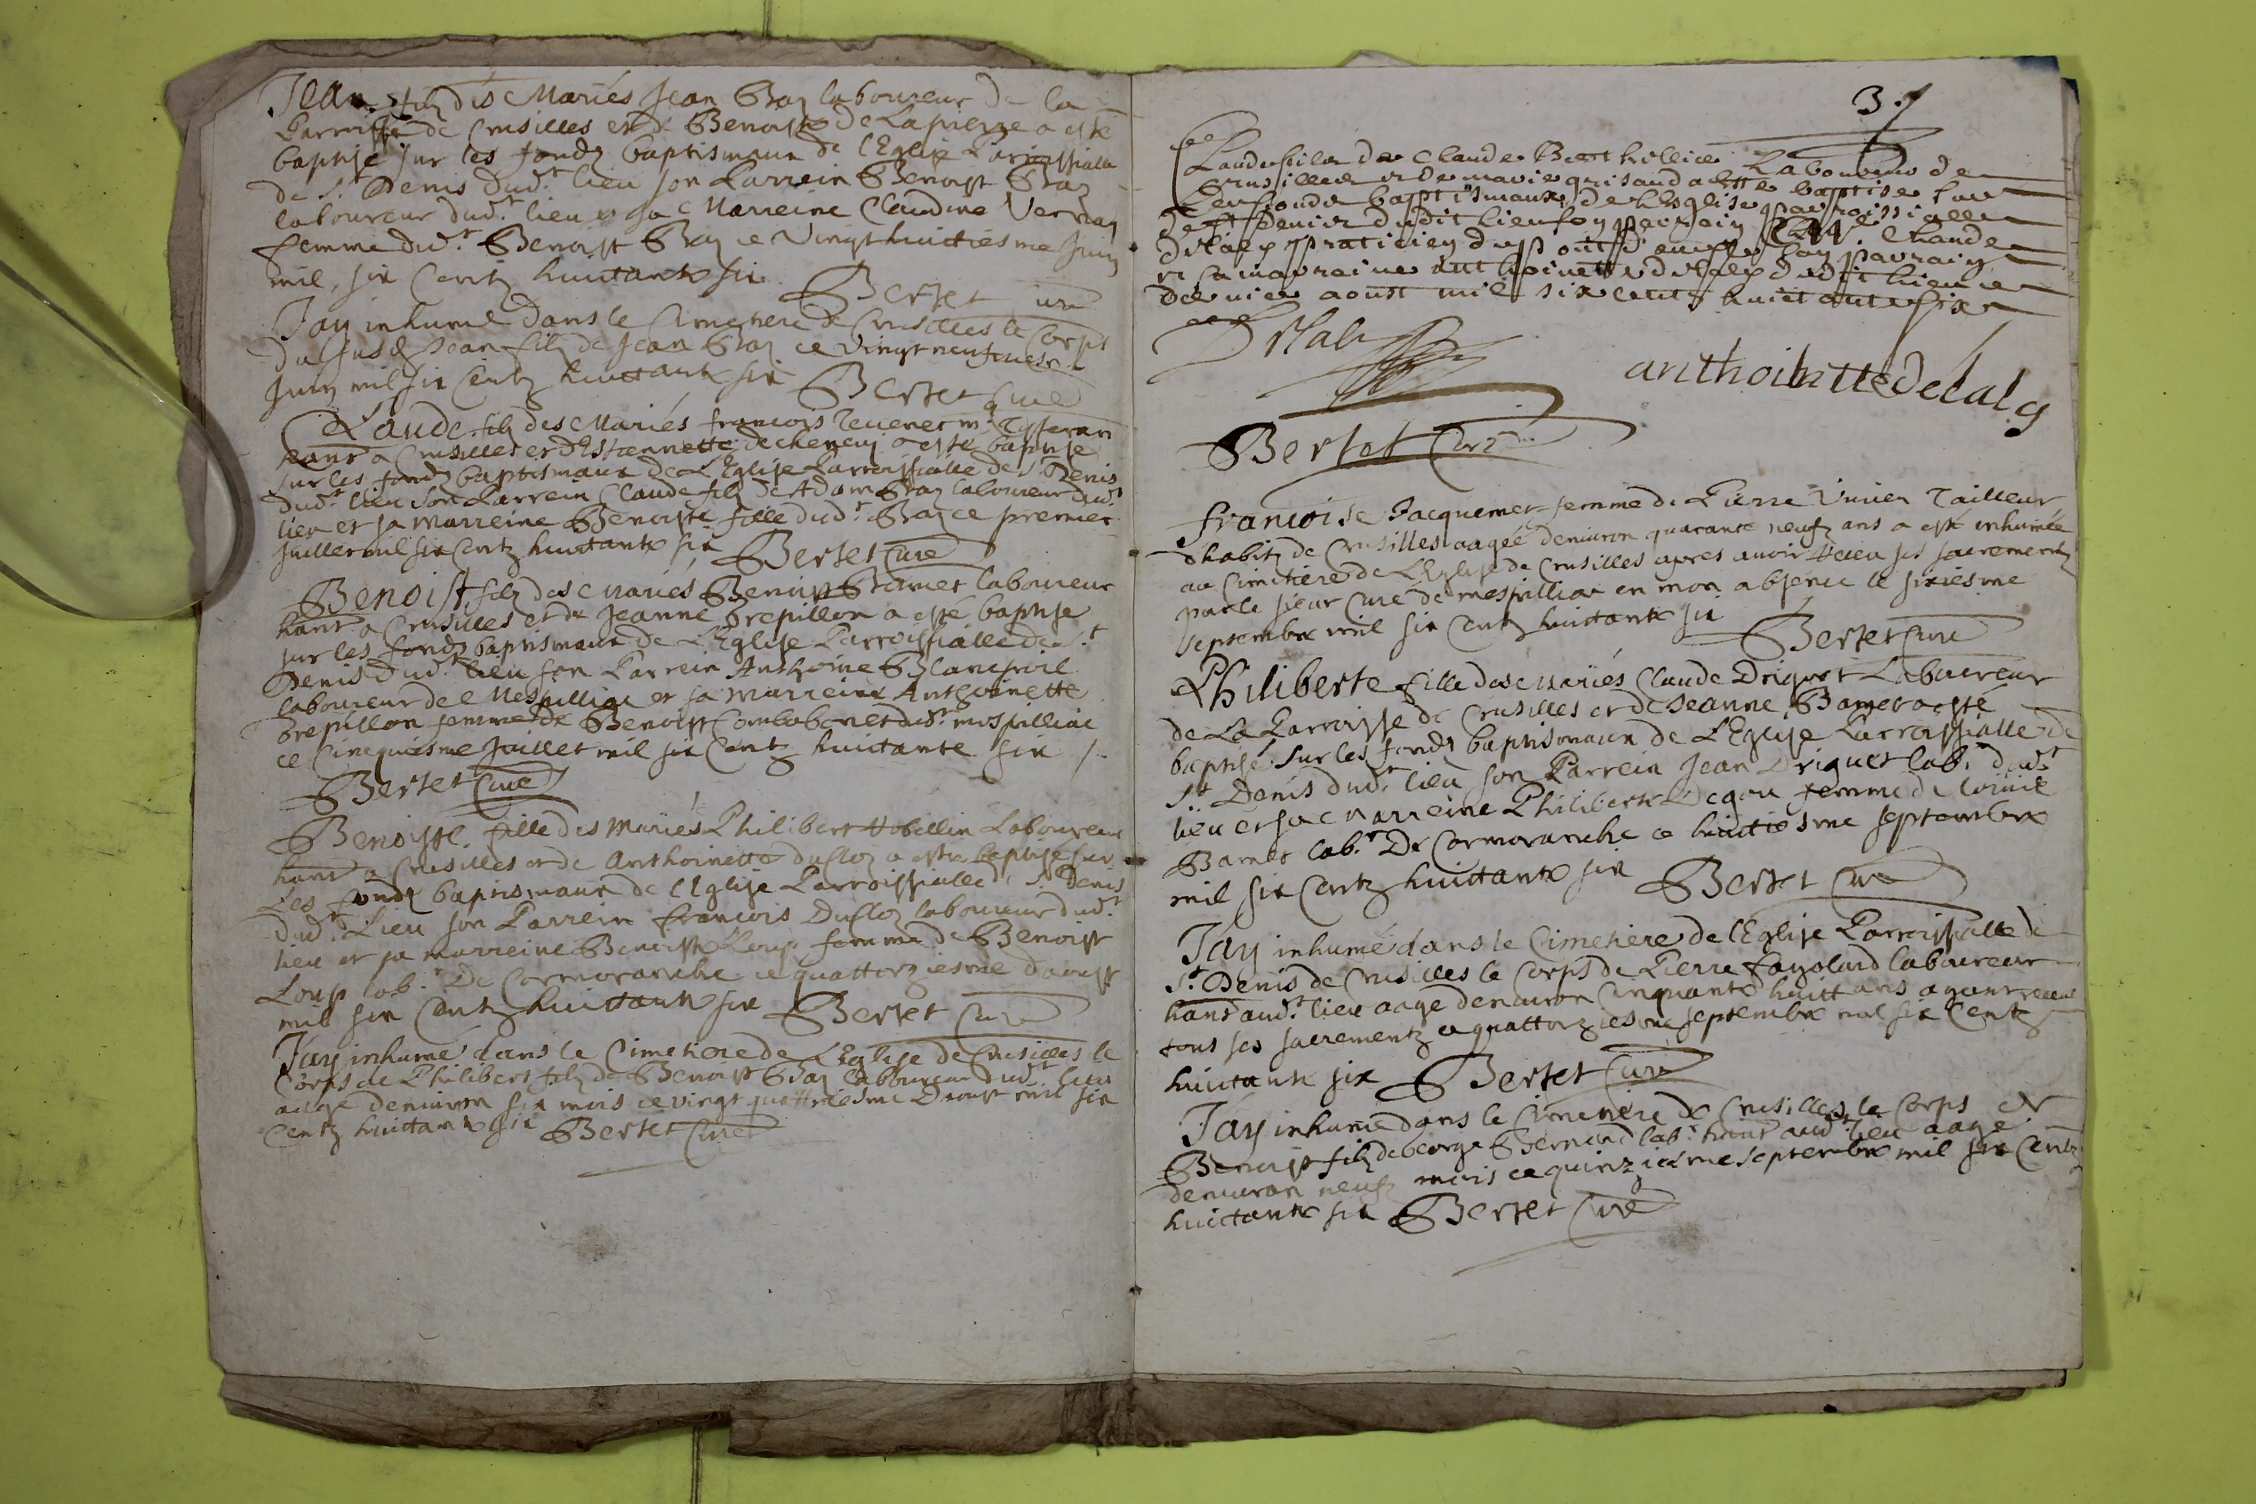 Jean filz des Mariés Jean Bay laboureur de la
Parroisse de Crusilles et de Benoiste de Lapierre a esté
baptisé sur les fondz baptismaux de l'Eglise Parroissialle
de St. Denis dudt. lieu son Parrein Benoist Bay
laboureur dudt. lieu et sa Marreine Claudine Vernay
femme dudt. Benoist Bay ce Vingt huittiesme Juin
mil six Centz huittante six Bertet curé
Jay inhumé dans le Cimetiere de Crusilles le Corps
dudt Jean filz de Jean Bay ce vingt neufviesme
Juin mil six Centz huittante six Bertet curé
Claude filz des Mariés francois Tevenet m. Tisseran
hant a Crusilles et d'Estiennette a esté baptisé
sur les fondz baptismaux de L'Eglise Parroissialle de St. Denis
dudt. lieu son Parrein Claude filz de Adam Bay laboureur dudt
lieu et sa Marreine Benoiste fille dudt. Bay ce premier
Juillet mil six Centz huittante six Bertet Curé
Benoist filz des Mariés Benoist laboureur
hant a Crusilles et de Jeanne Brepillon a esté baptisé
sur les fondz baptismaux de L'Eglise Parroissialle de St
Denis dudt. lieu son Parrein Anthoine Blancfoil
laboureur de Mespilliac et sa Marreine Anthoinette
Brepillon femme de Benoist dudt. mespilliac
ce Cinequiesme Juillet mil six Centz huittante six /.
Bertet Curé
Benoiste fille des Mariés Philibert Laboureur
hant a Crusilles et de Anthoinette Dufloz a esté baptisé sur
Les fondz baptismaux de l'Eglise Parroissialle de St. Denis
dudt. Lieu son Parrein francois Dufloz laboureur dudt.
lieu et sa marreine Benoiste Loup femme de Benoist
Loup lab.r De Cormoranche ce quattorziesme d'aoust
mil six Centz huittante six Bertet Curé
Jay inhumé dans le Cimetiere de L'Eglise de Crusilles le
Corps de Philibert filz de Benoist Bay laboureur dudt. lieu
aagé denuiron six mois ce vingt quattriesme Daoust mil six
Centz huittante six Bertet Curé
3.
Claude filz de Claude Berthillier Laboureur de
Crusilles et de marie a este baptise sur
Les fondz baptismaux de l'Esglise parroissialle
de St Denis dudit lieu son parrain Claude
praticien du pont
et sa marraine anthoinette dudit lieu ce
dernier aoust mil six centz huictante six
anthoinette delaly
Bertet Curé
francoise Jacquemet femme de Pierre Viuier Tailleur
dhabitz de Crusilles aagée denuiron quarante neufz ans a esté inhumée
au Cimetiere de L'Eglise de Crusilles apres auoir receu ses sacrementz
par le sieur Curé de mespilliac en mon absence le sixiesme
septembre mil six Centz huittante six
Bertet Curé
Philiberte fille des Mariés Claude Driguet Laboureur
de La Parroisse de Crusilles et de Jeanne Bamet a esté
baptisé sur les fondz baptismaux de L'Eglise Parroissialle de
St. Denis dudt. lieu son Parrein Jean Driguet lab.r dudt
lieu et sa Marreine Philiberte femme de
Bamet lab.r De Cormoranche ce huittiesme septembre
mil six Centz huittante six Bertet Curé
Jay inhumé dans le Cimetiere de l'Eglise Parroissialle de
St. Denis de Crusilles le Corps de Pierre fayolard laboureur
hant audt. lieu aagé denuiron Cinquante huitt ans ayant receu
tous ses sacrementz ce quattorziesme septembre mil six Centz
huittante six Bertet Curé
Jay inhumé dans le Cimetiere de Crusilles le Corps de
Benoist filz de George Bernard lab.r hant audt. lieu aagé
denuiron neufz mois ce quinziesme septembre mil six Centz
huittante six Bertet Curé